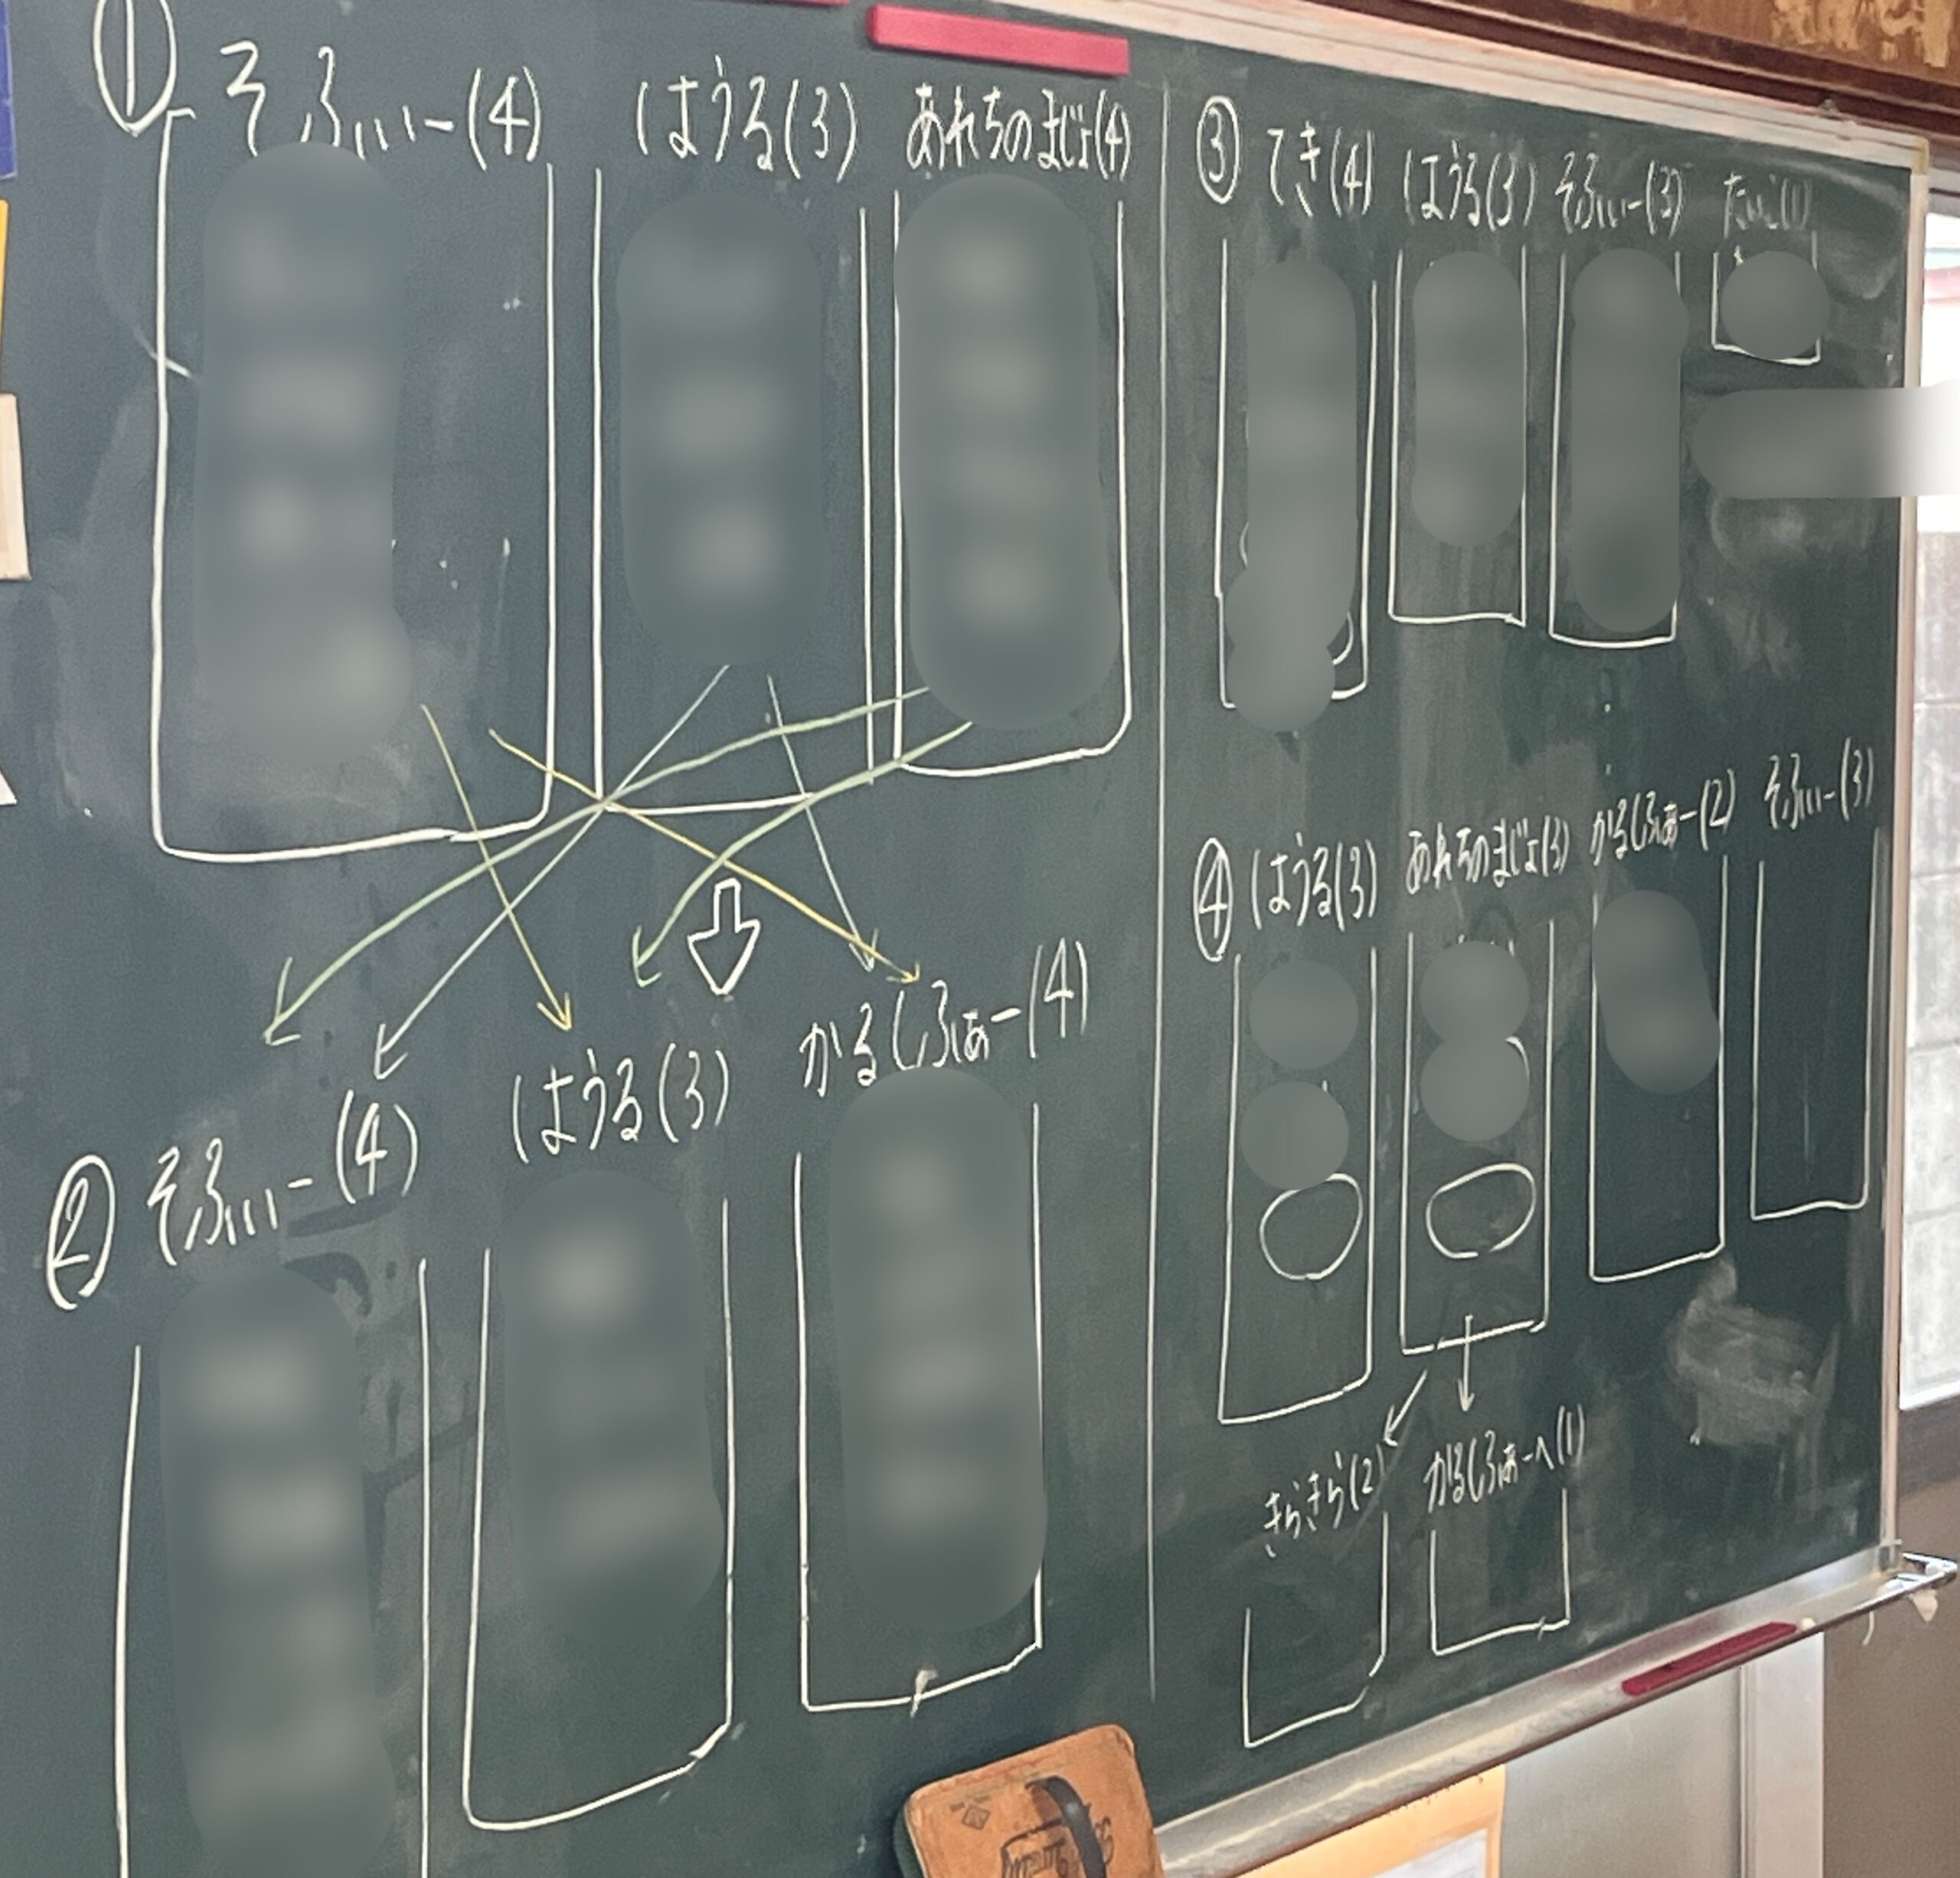 ① そふぃー(4) はうる(3) あれちのまじょ(4)
② そふぃー(4) はうる(3) かるしふぁー(4)
③ てき(4) はうる(3) そふぃー(3)
④ はうる(3) あれちのまじょ(3) かるしふぁー(2) そふぃー(3)
きらきら(2) かるしふぁーへ(1)